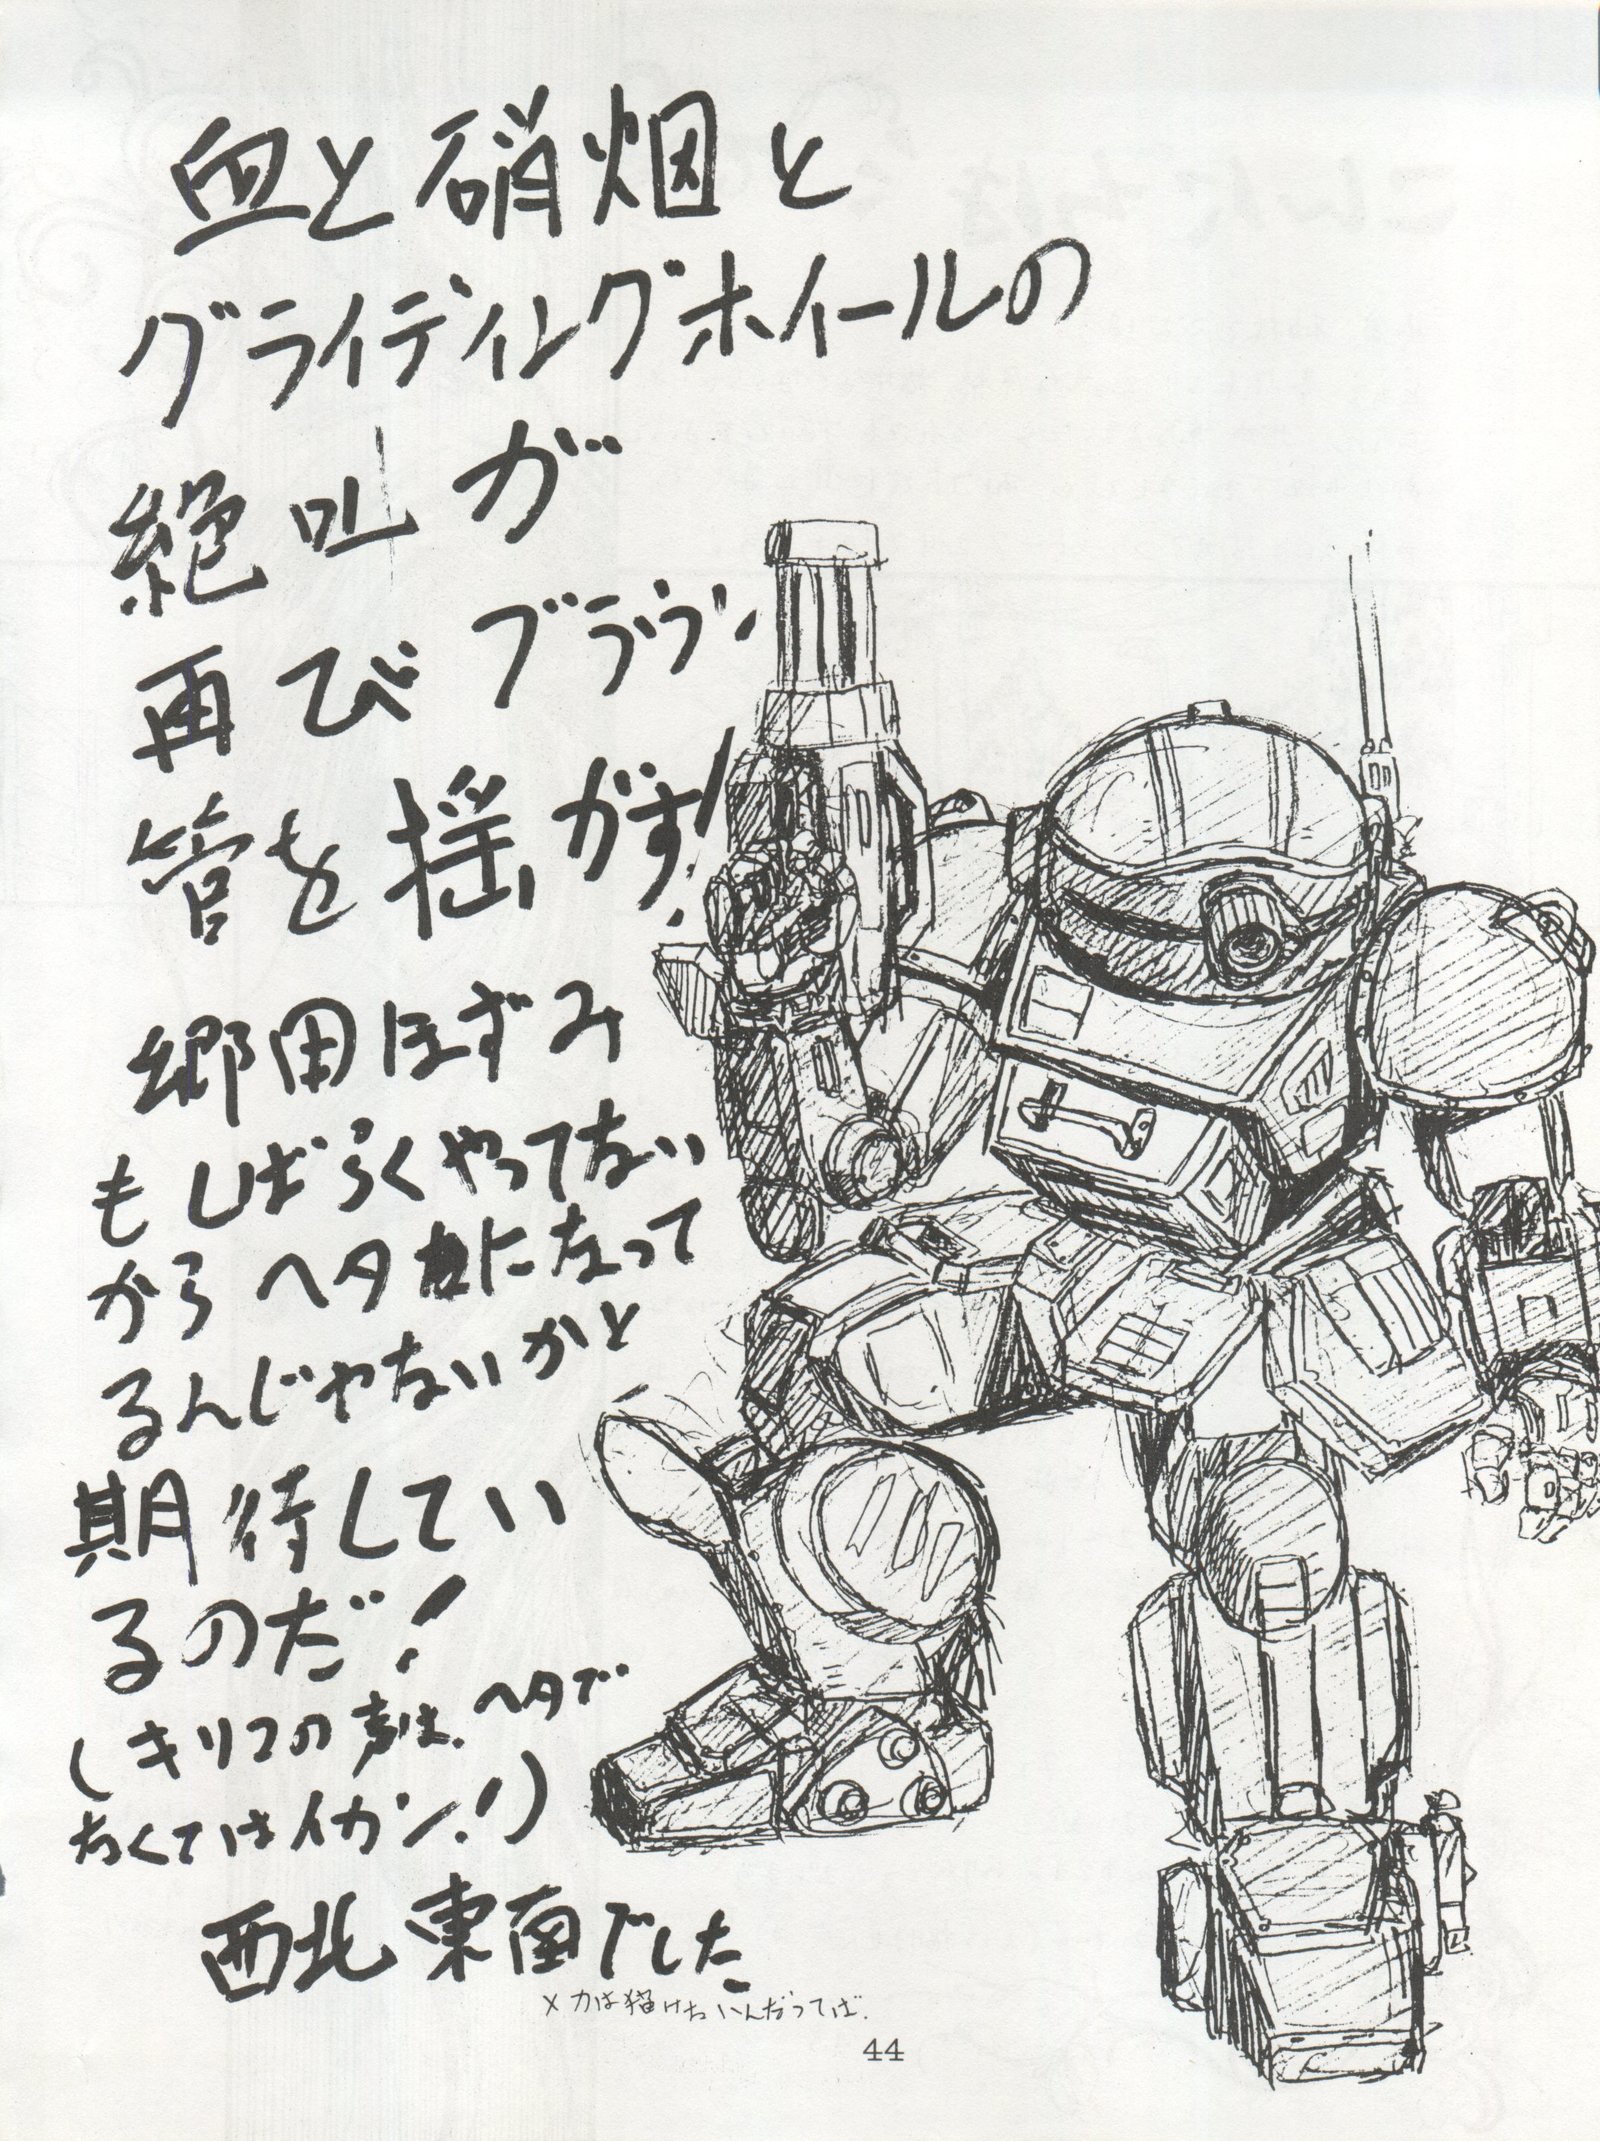 血と硝烟と
グライディングホイールの
絶叫が
再びブラウン
管を揺がす!
郷田ほずみ
もしばらくやってない
からヘタになって
るんじゃないかと
期待してい
るのだ!
(キリコの声は、ヘタで
なくてはイカン!)
西北東南でした
メカは描けないんだってば.
44